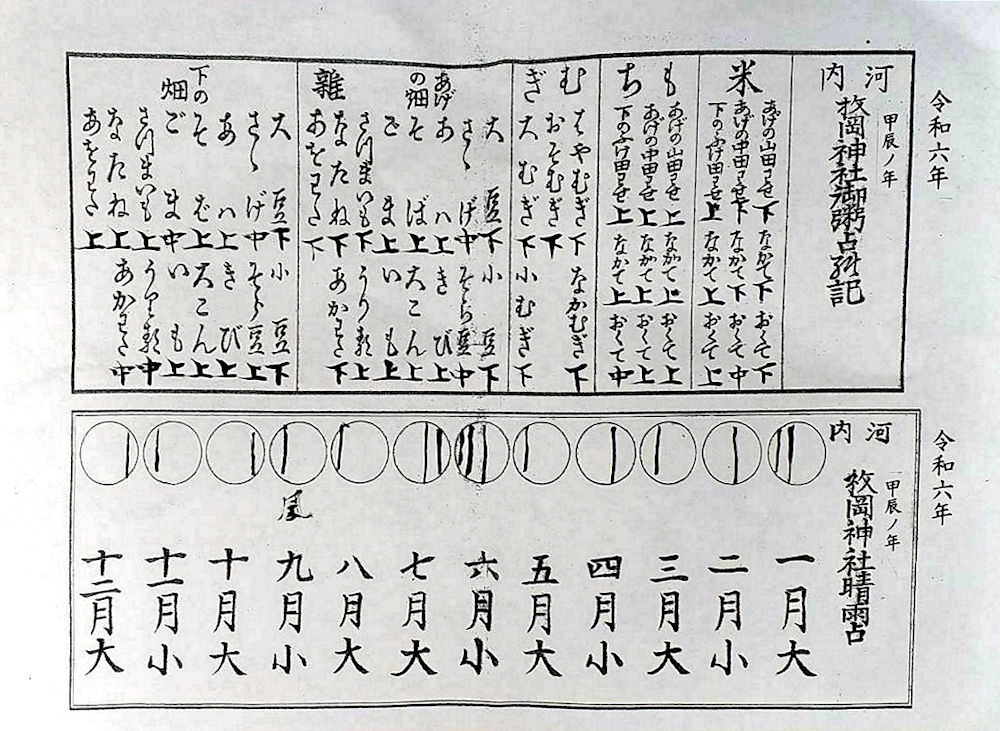 令和六年
甲辰ノ年
河内
枚岡神社御粥占記
米
あげの山田わせ下 なかて下 おくて下
あげの中田わせ下 なかて下 おくて中
下のふけ田わせ上 なかて上 おくて上
もち
あげの山田わせ上 なかて上 おくて上
あげの中田わせ上 なかて上 おくて上
下のふけ田わせ上 なかて上 おくて中
むぎ
はやむぎ下 なかむぎ下
おそむぎ下
大むぎ下 小むぎ下
あげの畑
大豆下 小豆下
さゝげ中 そら豆中
あハ上 きび上
そば上 大こん上
ごま上 いも上
さつまいも下 うり類上
なたね下 あかわた下
あをわた下
雜
下の畑
大豆下 小豆下
さゝげ中 そら豆上
あハ上 きび上
そば上 大こん上
ごま中 いも上
さつまいも上 うり類中
なたね上 あかわた中
あをわた上
令和六年
甲辰ノ年
河内
枚岡神社晴雨占
一月大
二月小
三月大
四月小
五月大
六月小
七月大
八月大
風
九月小
十月大
十一月小
十二月大